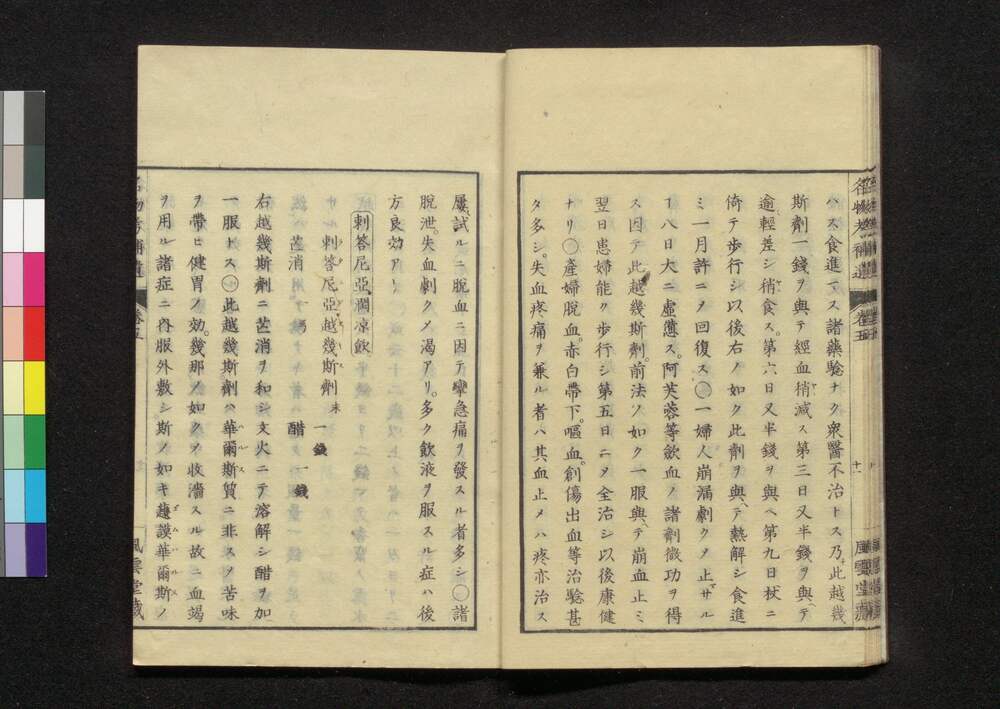 名物考補遺 卷五 十一 風雲堂藏
ハス食進マス諸藥驗ナク衆醫不治トス乃此越幾
斯劑一錢ヲ與テ經血稍減ス第三日又半錢ヲ與ヘテ
逾輕差シ稍食ス。第六日又半錢ヲ與ヘ第九日杖ニ
倚テ歩行シ以後右ノ如ク此劑ヲ與ヘテ熱解シ食進
ミ一月許ニメ回復ス〇一婦人崩漏劇クメ止マサル
丁八日大ニ虛憊ス。阿芙蓉等飲血ノ諸劑微功ヲ得
ス因テ此越幾斯劑。前法ノ如ク一服與ヘテ崩血止ミ
翌日患婦能ク歩行シ第五日ニメ全治シ以後康健
ナリ〇產婦脫血。赤白帶下。嘔血。創傷出血等治驗甚
タ多シ。失血疼痛ヲ兼ル者ハ其血止メハ疼亦治ス
屢試ルニ脫血ニ因テ攣急痛ヲ發スル者多シ〇諸
脫泄。失血劇クメ渴アリ。多ク飲液ヲ服スル症ハ後
方良効アリ
刺答尼亞㵎凉飲
刺答尼亞越幾斯劑 末 一錢
芒消 醋 一錢
右越幾斯劑ニ芒消ヲ和シ文火ニテ溶解シ醋ヲ加
一服トス〇此越幾斯劑ハ華爾斯質ニ非スメ苦味
ヲ帶ヒ健胃ノ効。幾那ノ如クメ收濇スル故ニ血竭
ヲ用ル諸症ニ內服外敷シ斯ノ如キ護謨華爾斯ノ
名物考補遺 卷五 風雲堂藏